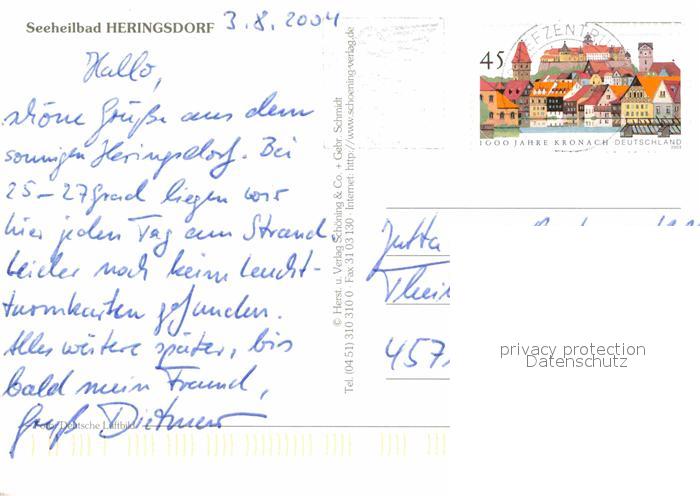 Seeheilbad HERINGSDORF 3.8.2004
Hallo,
schöne Grüße aus dem
sonnigen Heringsdorf. Bei
25-27 Grad liegen wir
hier jeden Tag am Strand
leider noch keine Leucht-
turmkarten gefunden.
Alles weitere später, bis
bald mein Freund,
Gruß Dietmar
Foto: Deutsche Luftbild
© Herst. u. Verlag Schöning & Co. + Gebr. Schmidt
Tel. (04 51) 310 310 0 · Fax 31 03 130 · Internet: http://www.schoening-verlag.de
BRIEFZENTRUM
45
1000 JAHRE KRONACH DEUTSCHLAND
2003
Jutta
457
privacy protection
Datenschutz